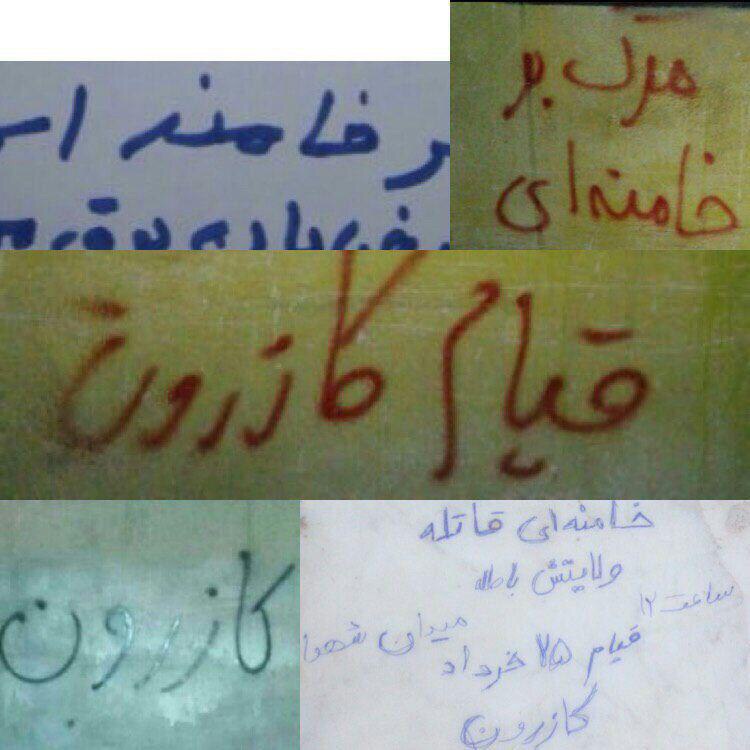 مرگ بر
خامنه‌ای
خامنه
قیام کازرون
کازرون
خامنه‌ای قاتله
ولایتش باطله
ساعت ۱۲
میدان شهدا
قیام ۲۵ خرداد
کازرون